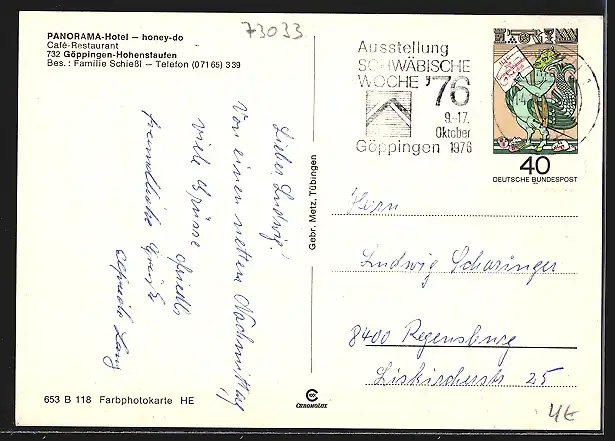 PANORAMA-Hotel – honey-do
Café-Restaurant
732 Göppingen-Hohenstaufen
Bes.: Familie Schießl – Telefon (07165) 339
73033
Ausstellung
SCHWÄBISCHE
WOCHE '76
9.-17.
Oktober
Göppingen 1976
40
DEUTSCHE BUNDESPOST
Lieber Ludwig!
Von einem netten Nachmittag
viele Grüsse
freundliche Grüße
Lang
Gebr. Metz, Tübingen
Herrn
Ludwig Scharinger
8400 Regensburg
Liskircherstr. 25
653 B 118 Farbphotokarte HE
CHROMOLUX
4€